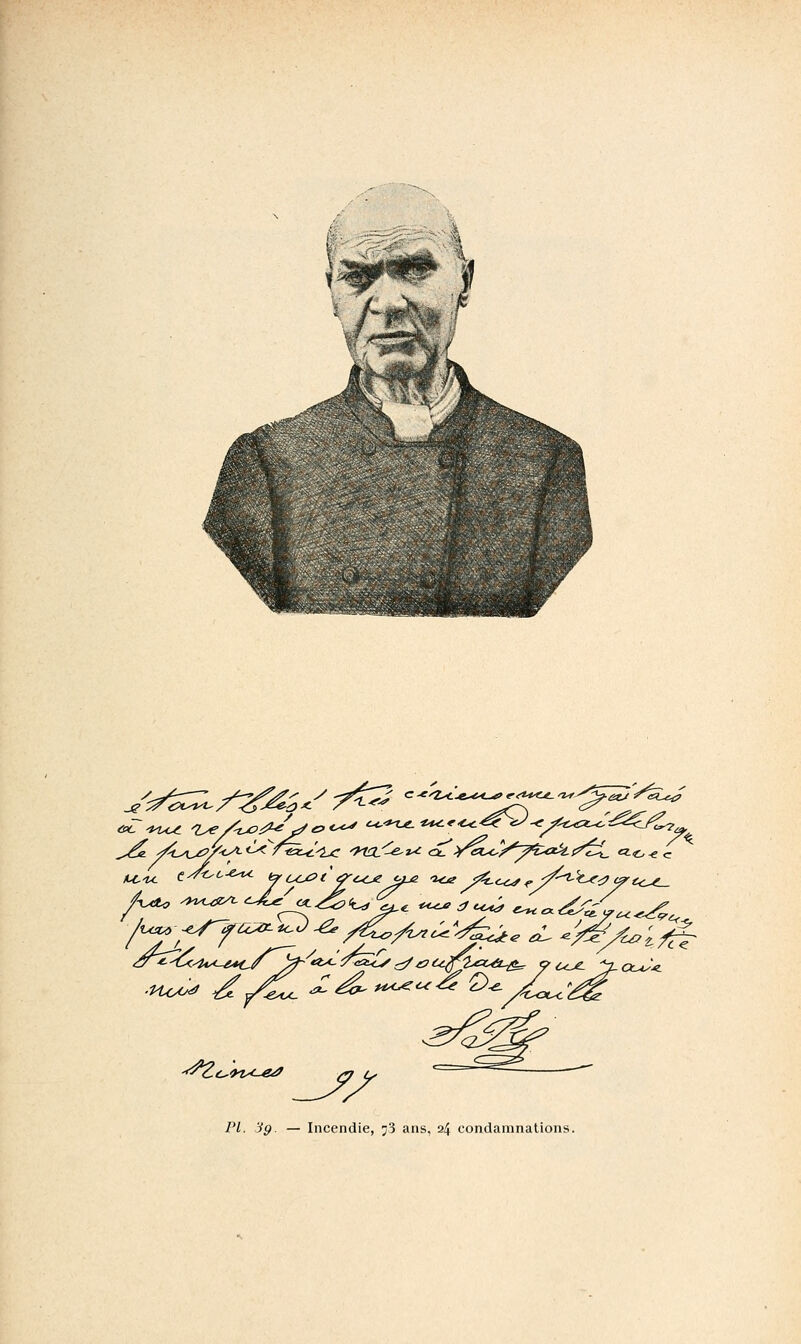 étant t âgé très cérieusement j'étais
à me reposé sous une meule de paille lorque
le propriétaire m'en à fait partir avec
un chien quoique je ne puse presque
pas marché alors je me suis en alé à quelque
pas et quand le propriétaire à été partie
télement j'aitais soufrante que j'aie
mis le feu à la meule De paille
Nimes 97
Pl. 39. — Incendie, 73 ans, 24 condamnations.